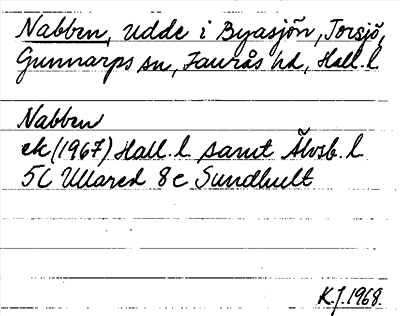 Nabben, udde i Byasjön, Torsjö,
Gunnarps sn, Faurås hd, Hall. l
Nabben
ek (1967) Hall. l samt Älvsb. l
5C Ullared 8e Sundhult
K.J. 1968.